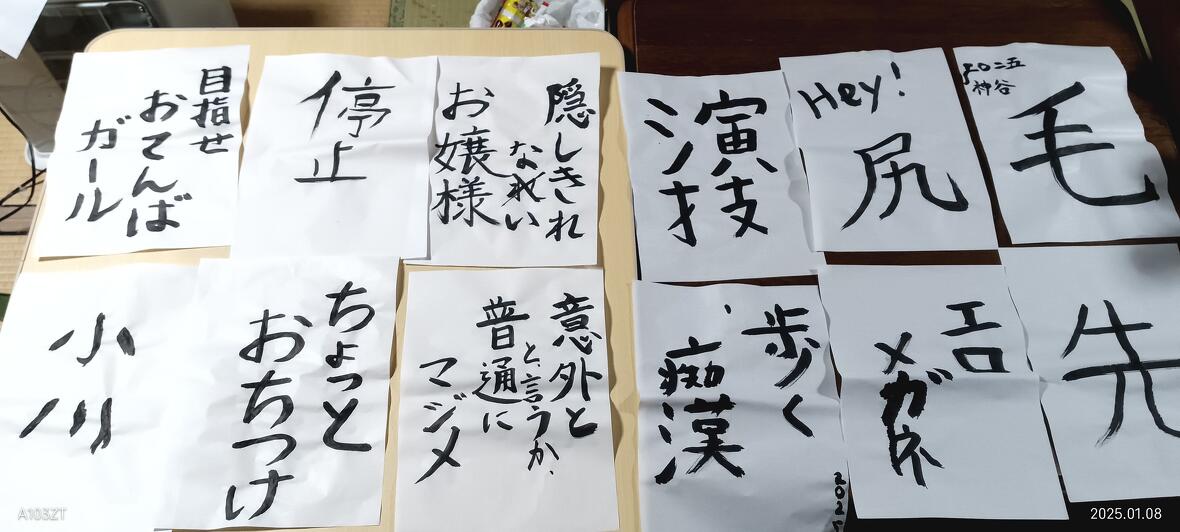 目指せ
おてんば
ガール
停
止
隠しきれ
なれい
お嬢様
演
技
Hey!
尻
二五
神谷
毛
小
川
ちょっと
おちつけ
意外と
と言うか、
普通に
マジメ
歩く
痴漢
エロ
メガネ
先
202
A103ZT
2025.01.08